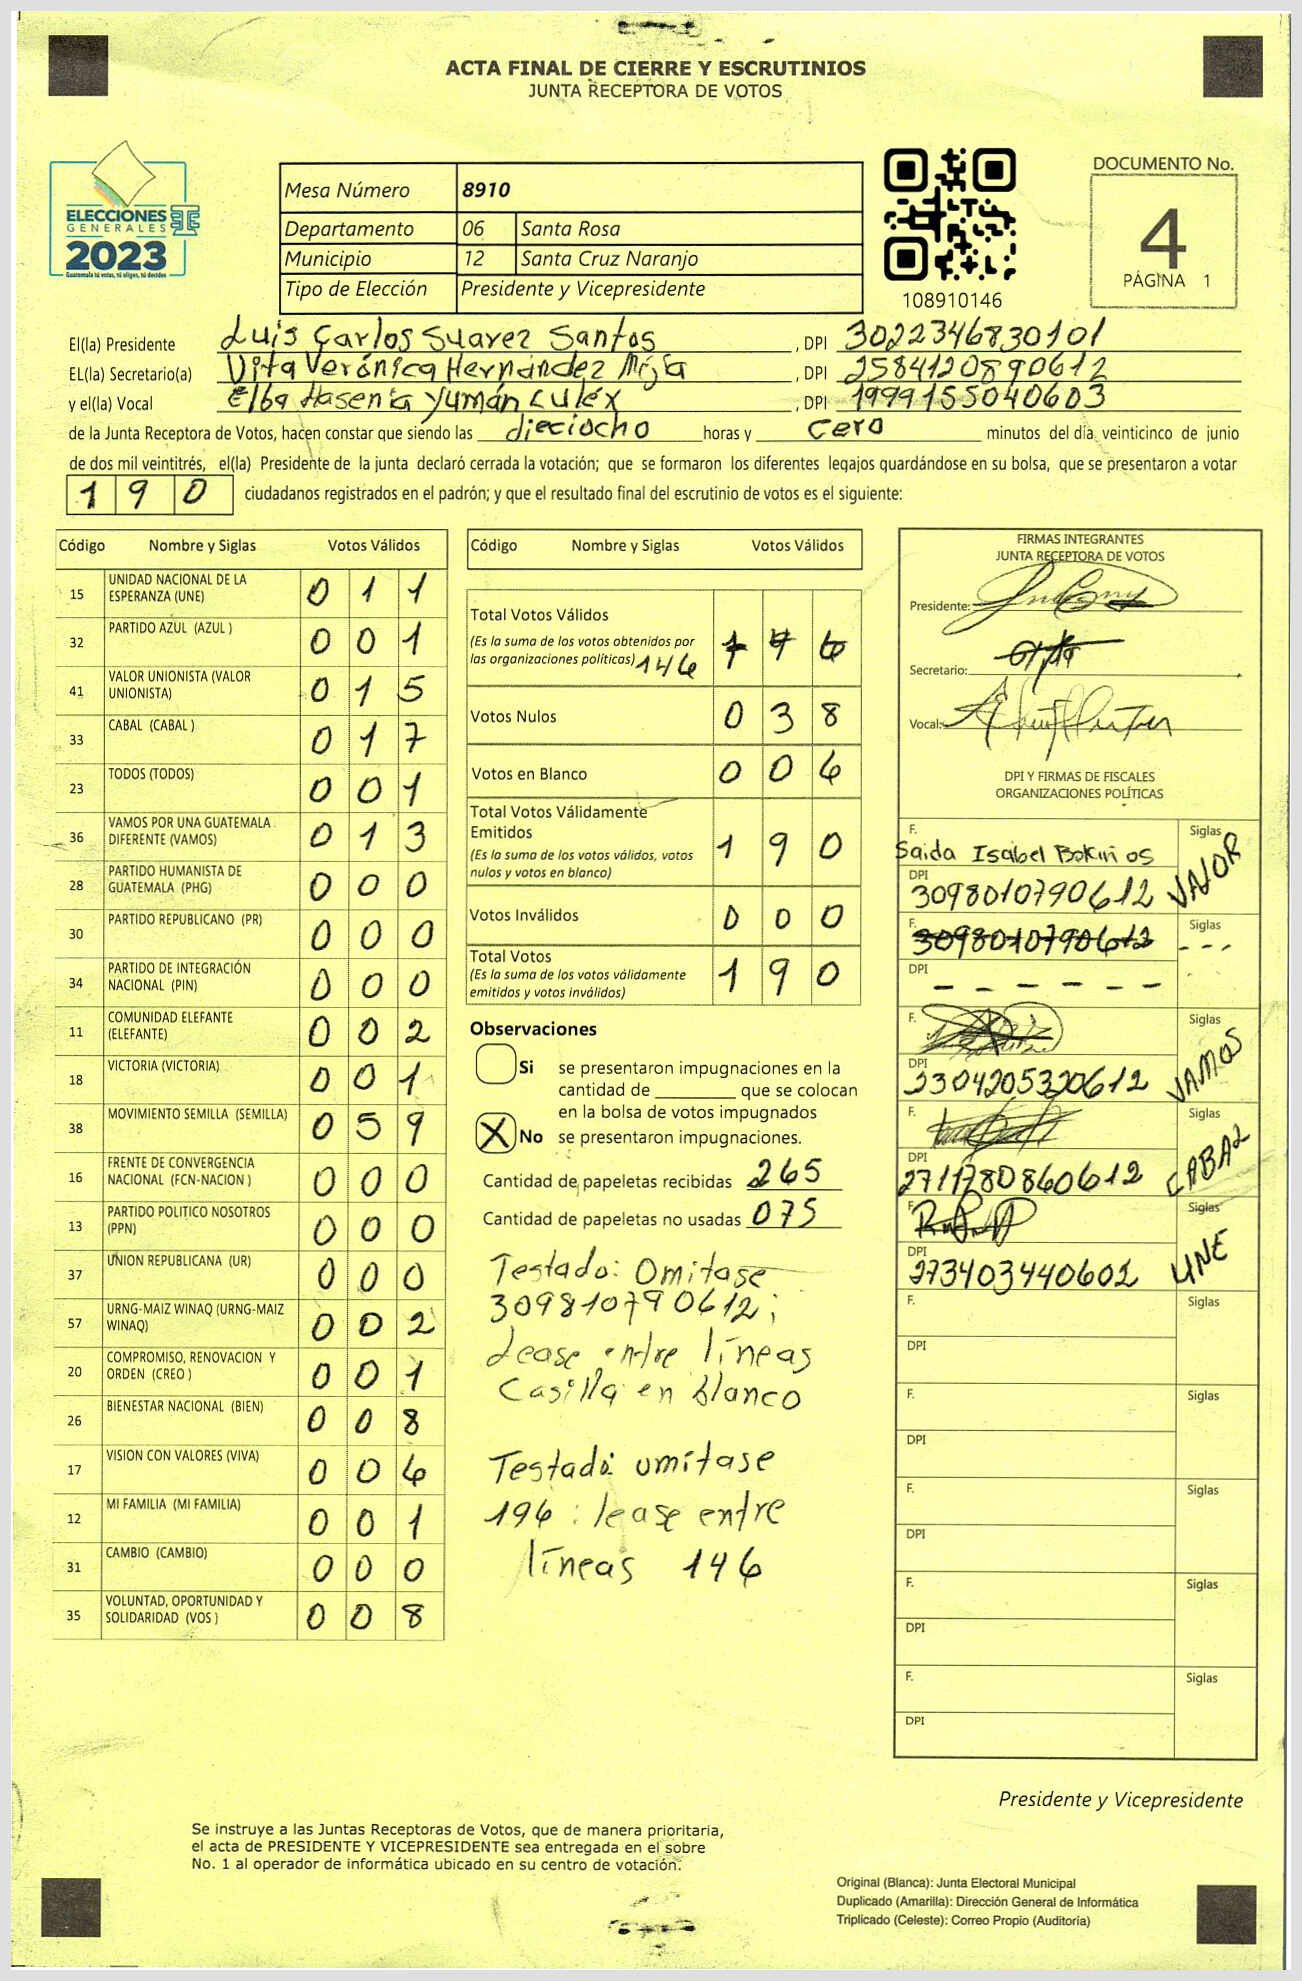 ACTA FINAL DE CIERRE Y ESCRUTINIOS
JUNTA RECEPTORA DE VOTOS
ELECCIONES
GENERALES
2023
Guatemala tú votas, tú eliges, tú decides
Mesa Número 8910
Departamento 06 Santa Rosa
Municipio 12 Santa Cruz Naranjo
Tipo de Elección Presidente y Vicepresidente
108910146
DOCUMENTO No.
4
PÁGINA 1
El(la) Presidente Luis Carlos Suarez Santos, DPI 3022346830101
EL(la) Secretario(a) Vita Verónica Hernández Mijia, DPI 2584120890612
y el(la) Vocal Elba Hasenia Yumán Culex, DPI 1999155040603
de la Junta Receptora de Votos, hacen constar que siendo las dieciocho horas y cero minutos del día veinticinco de junio
de dos mil veintitrés, el(la) Presidente de la junta declaró cerrada la votación; que se formaron los diferentes legajos guardándose en su bolsa, que se presentaron a votar
190 ciudadanos registrados en el padrón; y que el resultado final del escrutinio de votos es el siguiente:
Código Nombre y Siglas Votos Válidos
15 UNIDAD NACIONAL DE LA ESPERANZA (UNE) 0 1 1
32 PARTIDO AZUL (AZUL ) 0 0 1
41 VALOR UNIONISTA (VALOR UNIONISTA) 0 1 5
33 CABAL (CABAL ) 0 1 7
23 TODOS (TODOS) 0 0 1
36 VAMOS POR UNA GUATEMALA DIFERENTE (VAMOS) 0 1 3
28 PARTIDO HUMANISTA DE GUATEMALA (PHG) 0 0 0
30 PARTIDO REPUBLICANO (PR) 0 0 0
34 PARTIDO DE INTEGRACIÓN NACIONAL (PIN) 0 0 0
11 COMUNIDAD ELEFANTE (ELEFANTE) 0 0 2
18 VICTORIA (VICTORIA) 0 0 1
38 MOVIMIENTO SEMILLA (SEMILLA) 0 5 9
16 FRENTE DE CONVERGENCIA NACIONAL (FCN-NACION ) 0 0 0
13 PARTIDO POLITICO NOSOTROS (PPN) 0 0 0
37 UNION REPUBLICANA (UR) 0 0 0
57 URNG-MAIZ WINAQ (URNG-MAIZ WINAQ) 0 0 2
20 COMPROMISO, RENOVACION Y ORDEN (CREO ) 0 0 1
26 BIENESTAR NACIONAL (BIEN) 0 0 8
17 VISION CON VALORES (VIVA) 0 0 6
12 MI FAMILIA (MI FAMILIA) 0 0 1
31 CAMBIO (CAMBIO) 0 0 0
35 VOLUNTAD, OPORTUNIDAD Y SOLIDARIDAD (VOS ) 0 0 8
Código Nombre y Siglas Votos Válidos
Total Votos Válidos
(Es la suma de los votos obtenidos por
las organizaciones políticas) 146
Votos Nulos 0 3 8
Votos en Blanco 0 0 6
Total Votos Válidamente
Emitidos 1 9 0
(Es la suma de los votos válidos, votos
nulos y votos en blanco)
Votos Inválidos 0 0 0
Total Votos 1 9 0
(Es la suma de los votos válidamente
emitidos y votos inválidos)
Observaciones
Si se presentaron impugnaciones en la
cantidad de ________ que se colocan
en la bolsa de votos impugnados
X No se presentaron impugnaciones.
Cantidad de papeletas recibidas 265
Cantidad de papeletas no usadas 075
Testado: Omitase
309810790612;
Lease entre líneas
Casilla en blanco
Testado: omitase
196 : lease entre
líneas 146
FIRMAS INTEGRANTES
JUNTA RECEPTORA DE VOTOS
Presidente:
Secretario:
Vocal:
DPI Y FIRMAS DE FISCALES
ORGANIZACIONES POLÍTICAS
F. Siglas
Saida Isabel VALOR
DPI
3098010790612
F. 3098010790612 Siglas - - -
DPI - - - - - -
F. Siglas
DPI VAMOS
2304205320612
F. Siglas
DPI CABAL
2711780860612
F. Siglas
DPI UNE
273403440602
F. Siglas
DPI
F. Siglas
DPI
F. Siglas
DPI
F. Siglas
DPI
F. Siglas
DPI
Presidente y Vicepresidente
Se instruye a las Juntas Receptoras de Votos, que de manera prioritaria,
el acta de PRESIDENTE Y VICEPRESIDENTE sea entregada en el sobre
No. 1 al operador de informática ubicado en su centro de votación.
Original (Blanca): Junta Electoral Municipal
Duplicado (Amarilla): Dirección General de Informática
Triplicado (Celeste): Correo Propio (Auditoría)